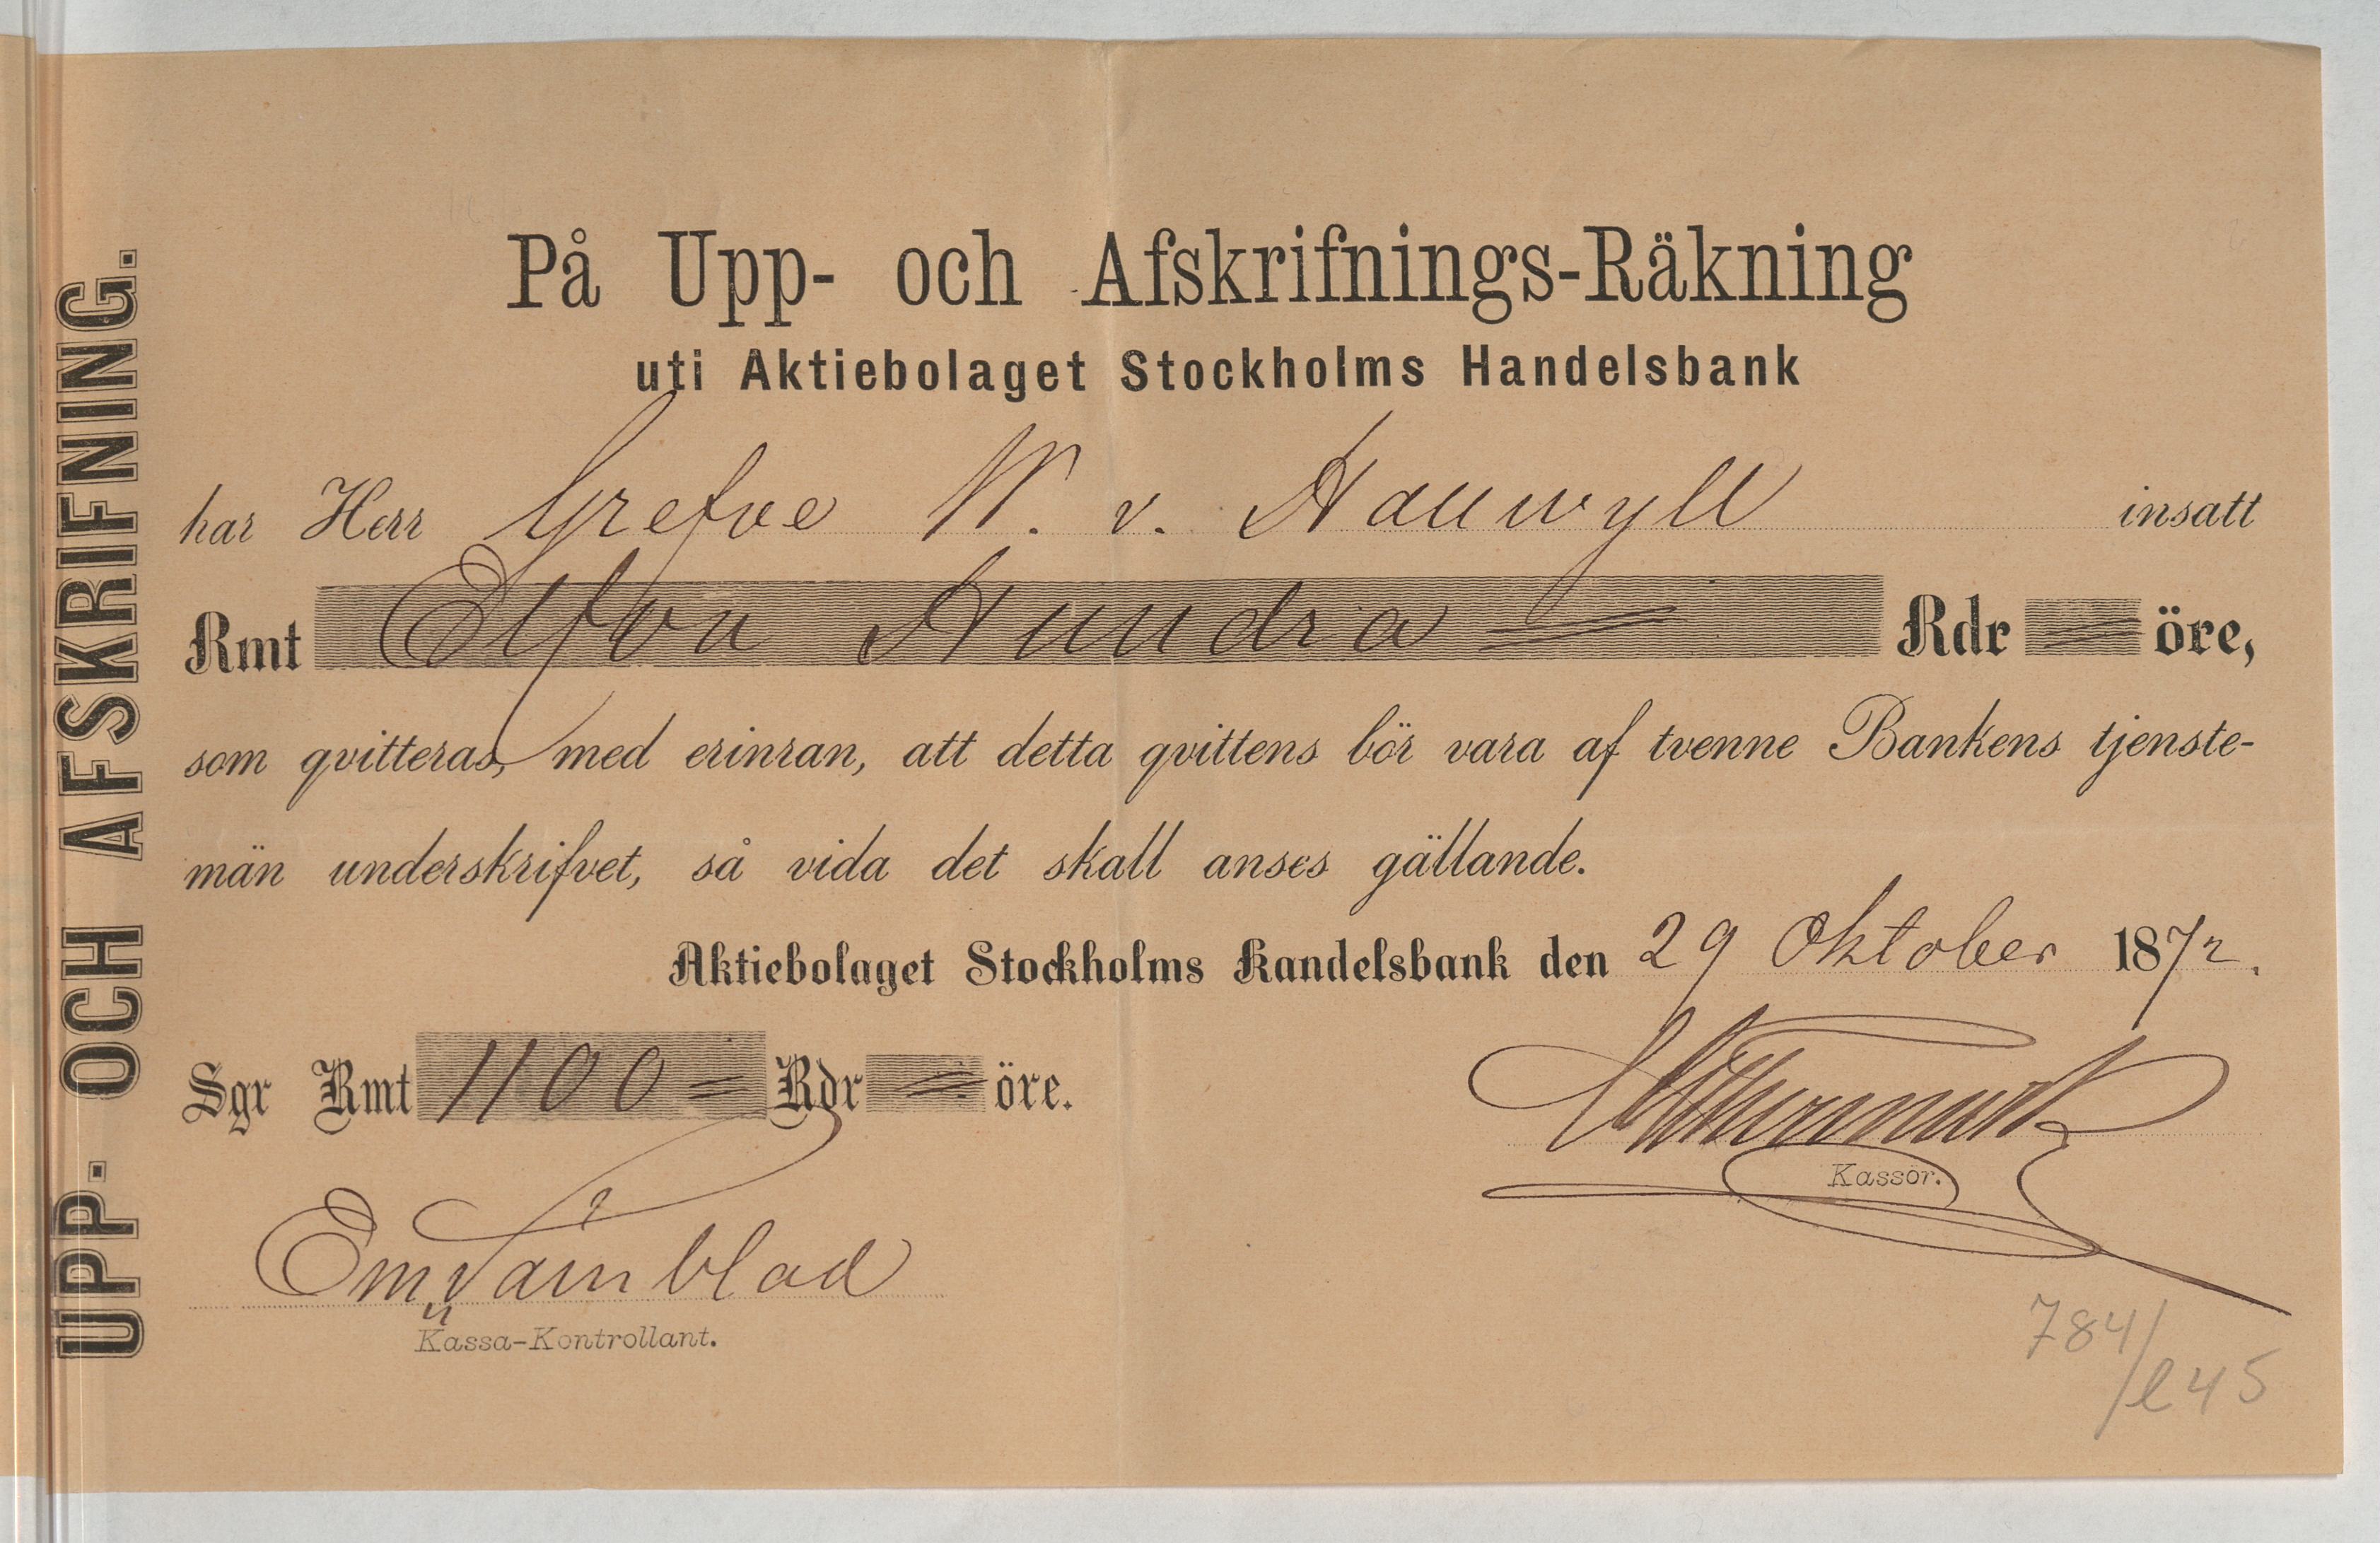 UPP- OCH AFSKRIFNING.
På Upp- och Afskrifnings-Räkning
uti Aktiebolaget Stockholms Handelsbank
har Herr Grefve W. v. Hallwyll insatt
Rmt Elfva Hundra = Rdr = öre,
som qvitteras, med erinran, att detta qvittens bör vara af tvenne Bankens tjenste-
män underskrifvet, så vida det skall anses gällande.
Aktiebolaget Stockholms Handelsbank den 29 Oktober 1872.
Sgr Rmt 1100 = Rdr = öre.
Kassör.
Kassa-Kontrollant.
784/
/l45